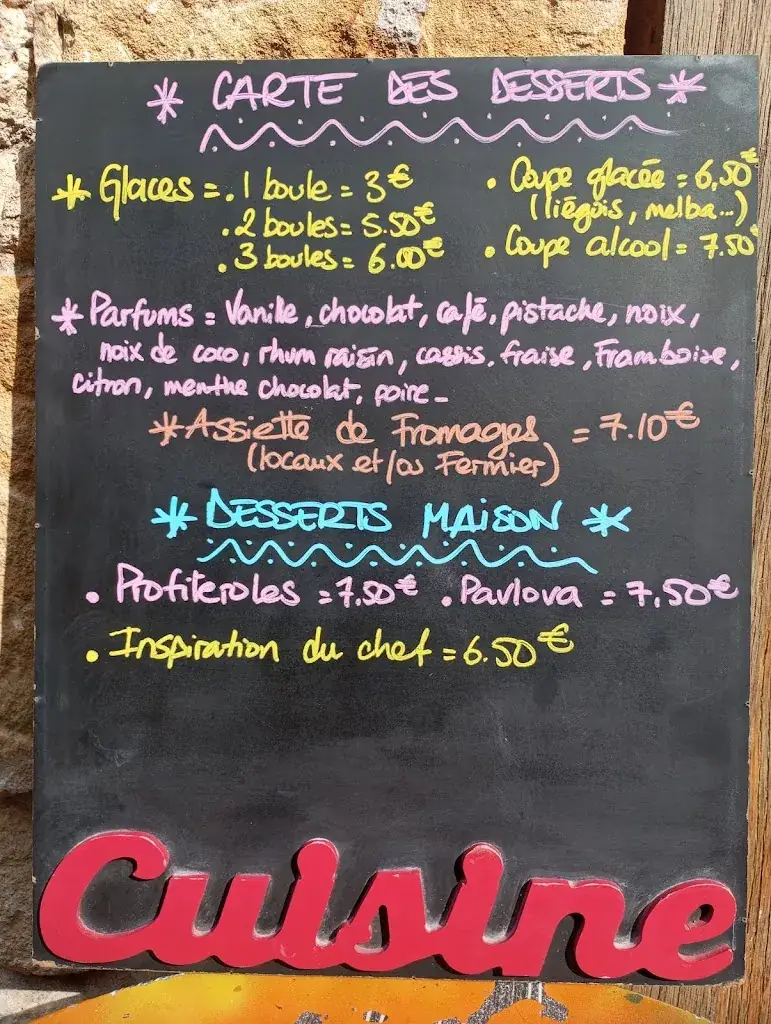 * CARTE DES DESSERTS *
* Glaces = . 1 boule = 3€
. 2 boules = 5.50€
. 3 boules = 6.00€
. Coupe glacée = 6,50€
(liégois, melba...)
. Coupe alcool = 7.50
* Parfums = Vanille, chocolat, café, pistache, noix,
noix de coco, rhum raisin, cassis, fraise, Framboise,
citron, menthe chocolat, poire -
* Assiette de Fromages = 7.10€
(locaux et/ou Fermier)
* DESSERTS MAISON *
. Profiteroles = 7.50€ . Pavlova = 7.50€
. Inspiration du chef = 6.50€
Cuisine